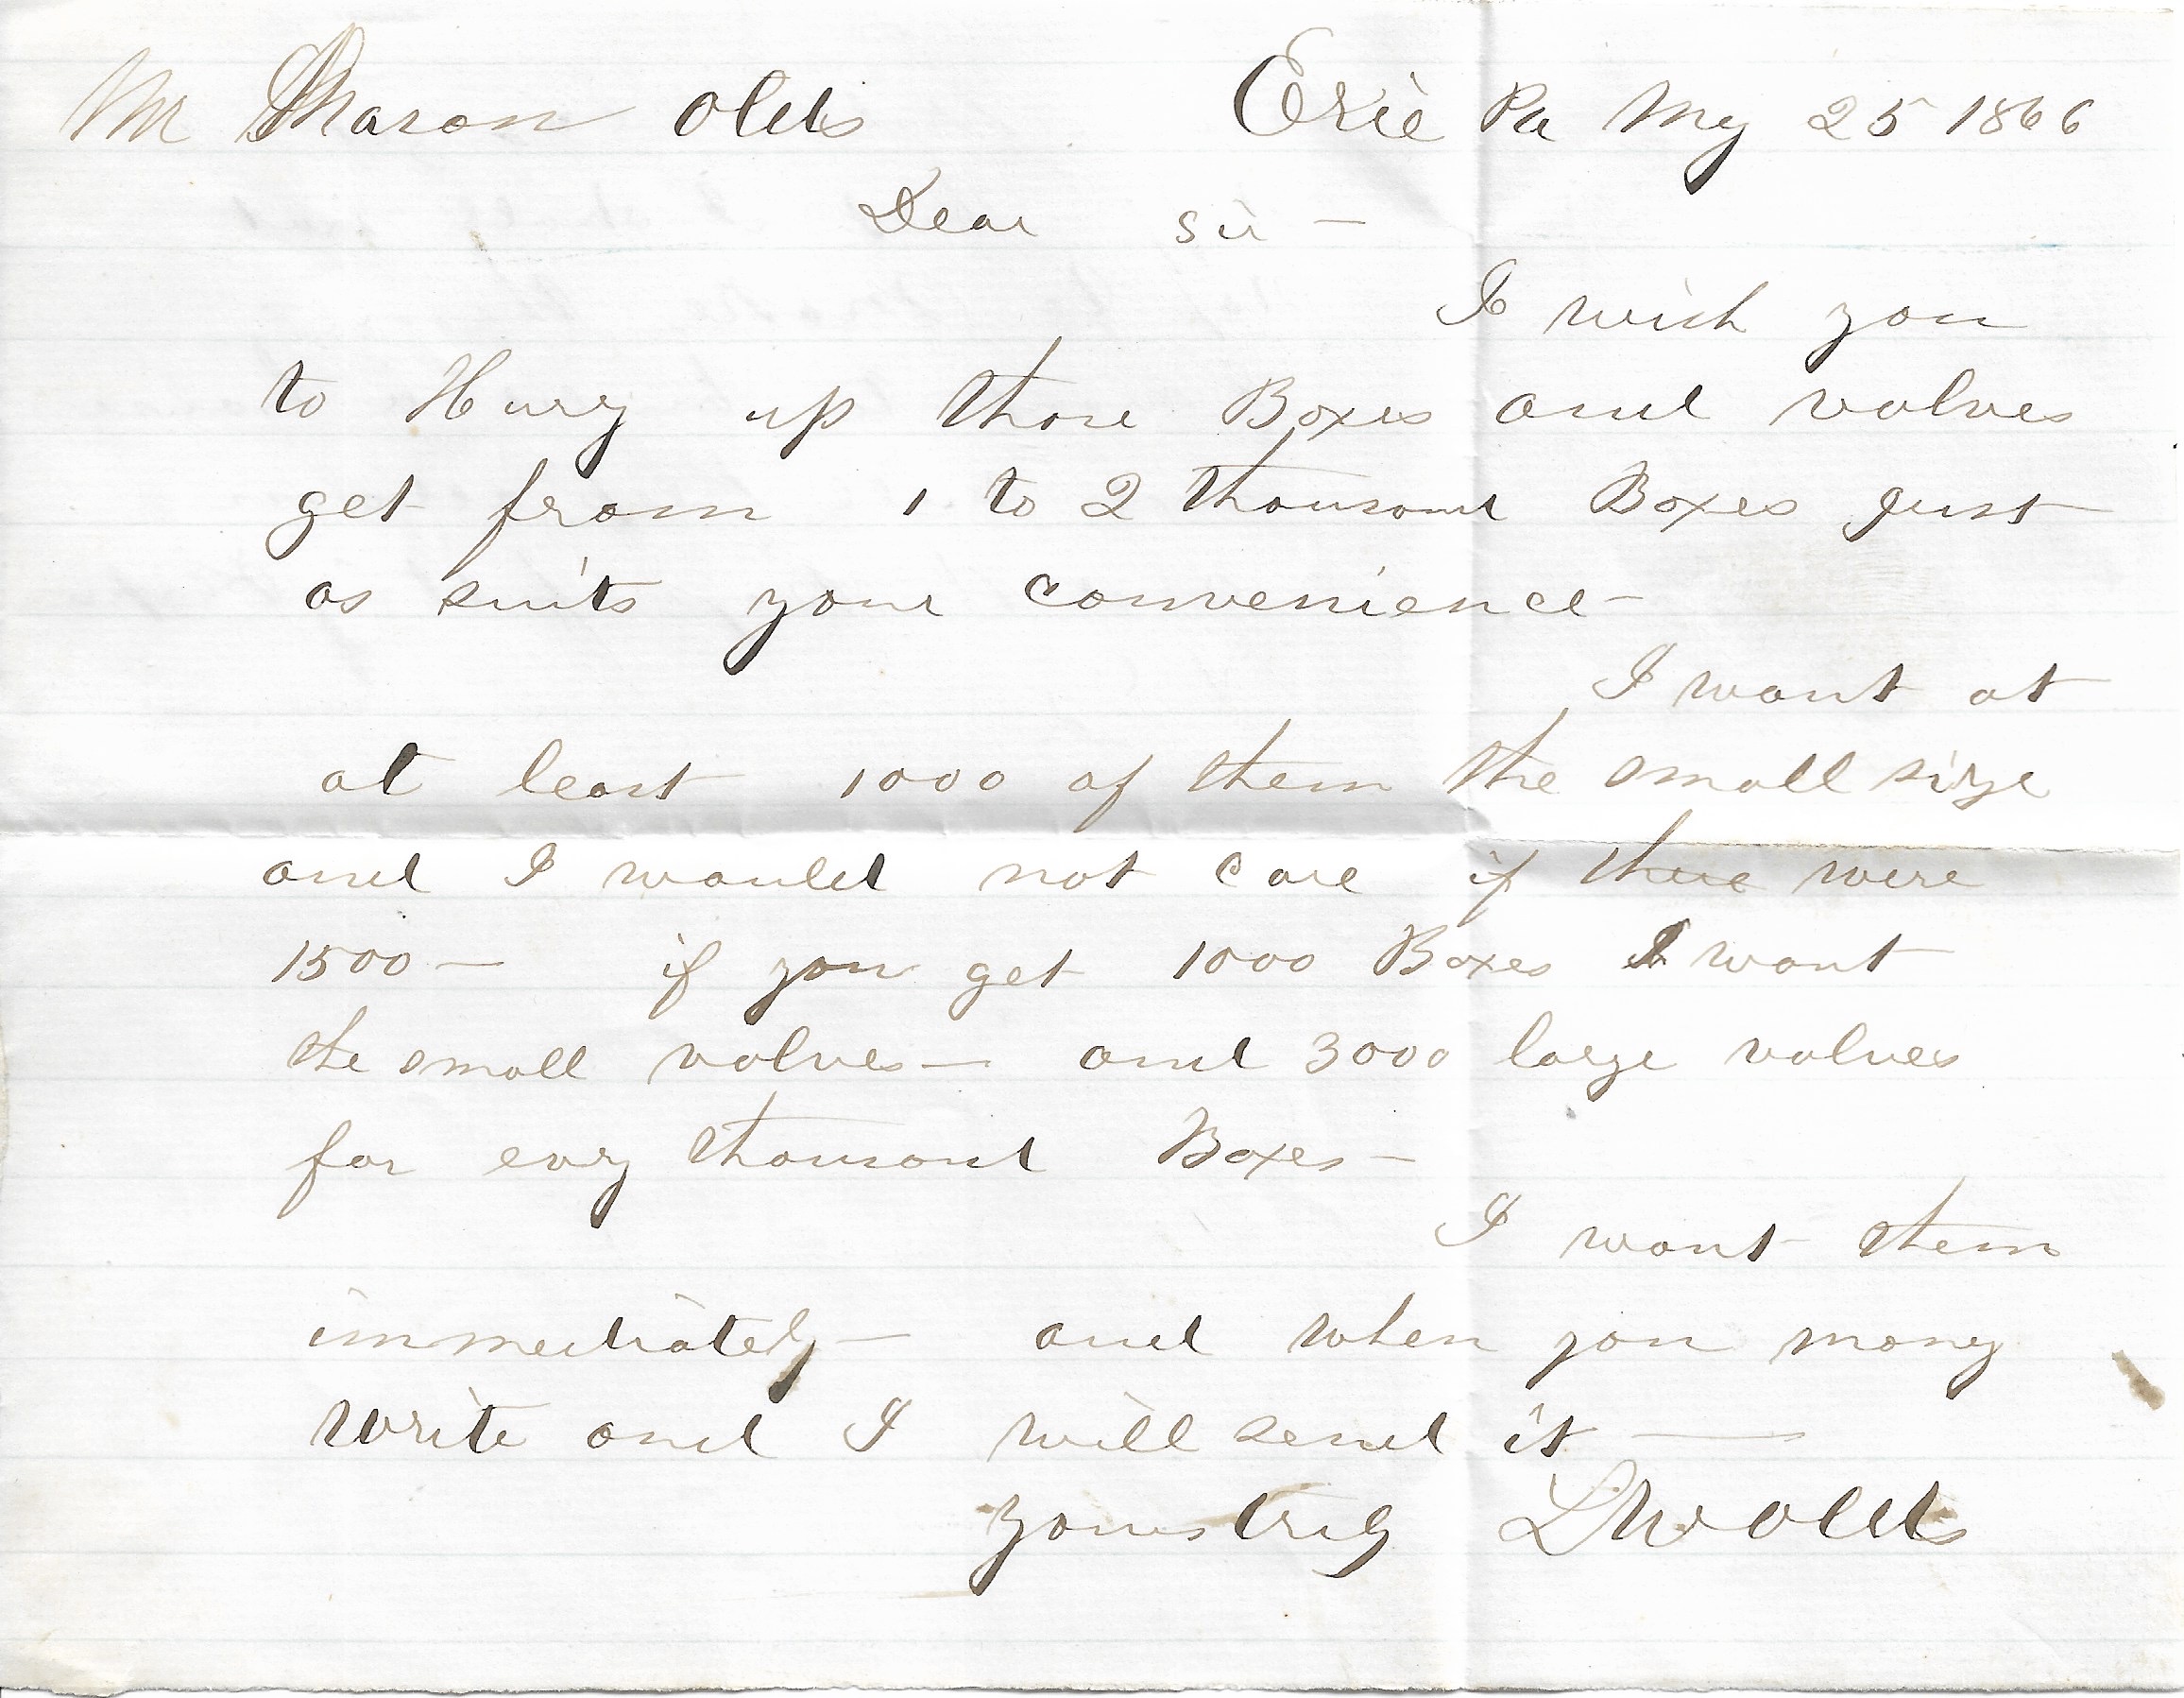 Mr Sharon Olds Erie Pa My 25 1866
Dear Sir —
I wish you
to Hury up those Boxes and valves
get from 1 to 2 thousand Boxes just
as suits your convenience —
I want at
at least 1000 of them the small size
and I would not care if there were
1500 — if you get 1000 Boxes I want
the small valves — and 3000 large valves
for evry thousand Boxes —
I want them
immediately — and when you mony
write and I will send it —
yours truly L W Olds